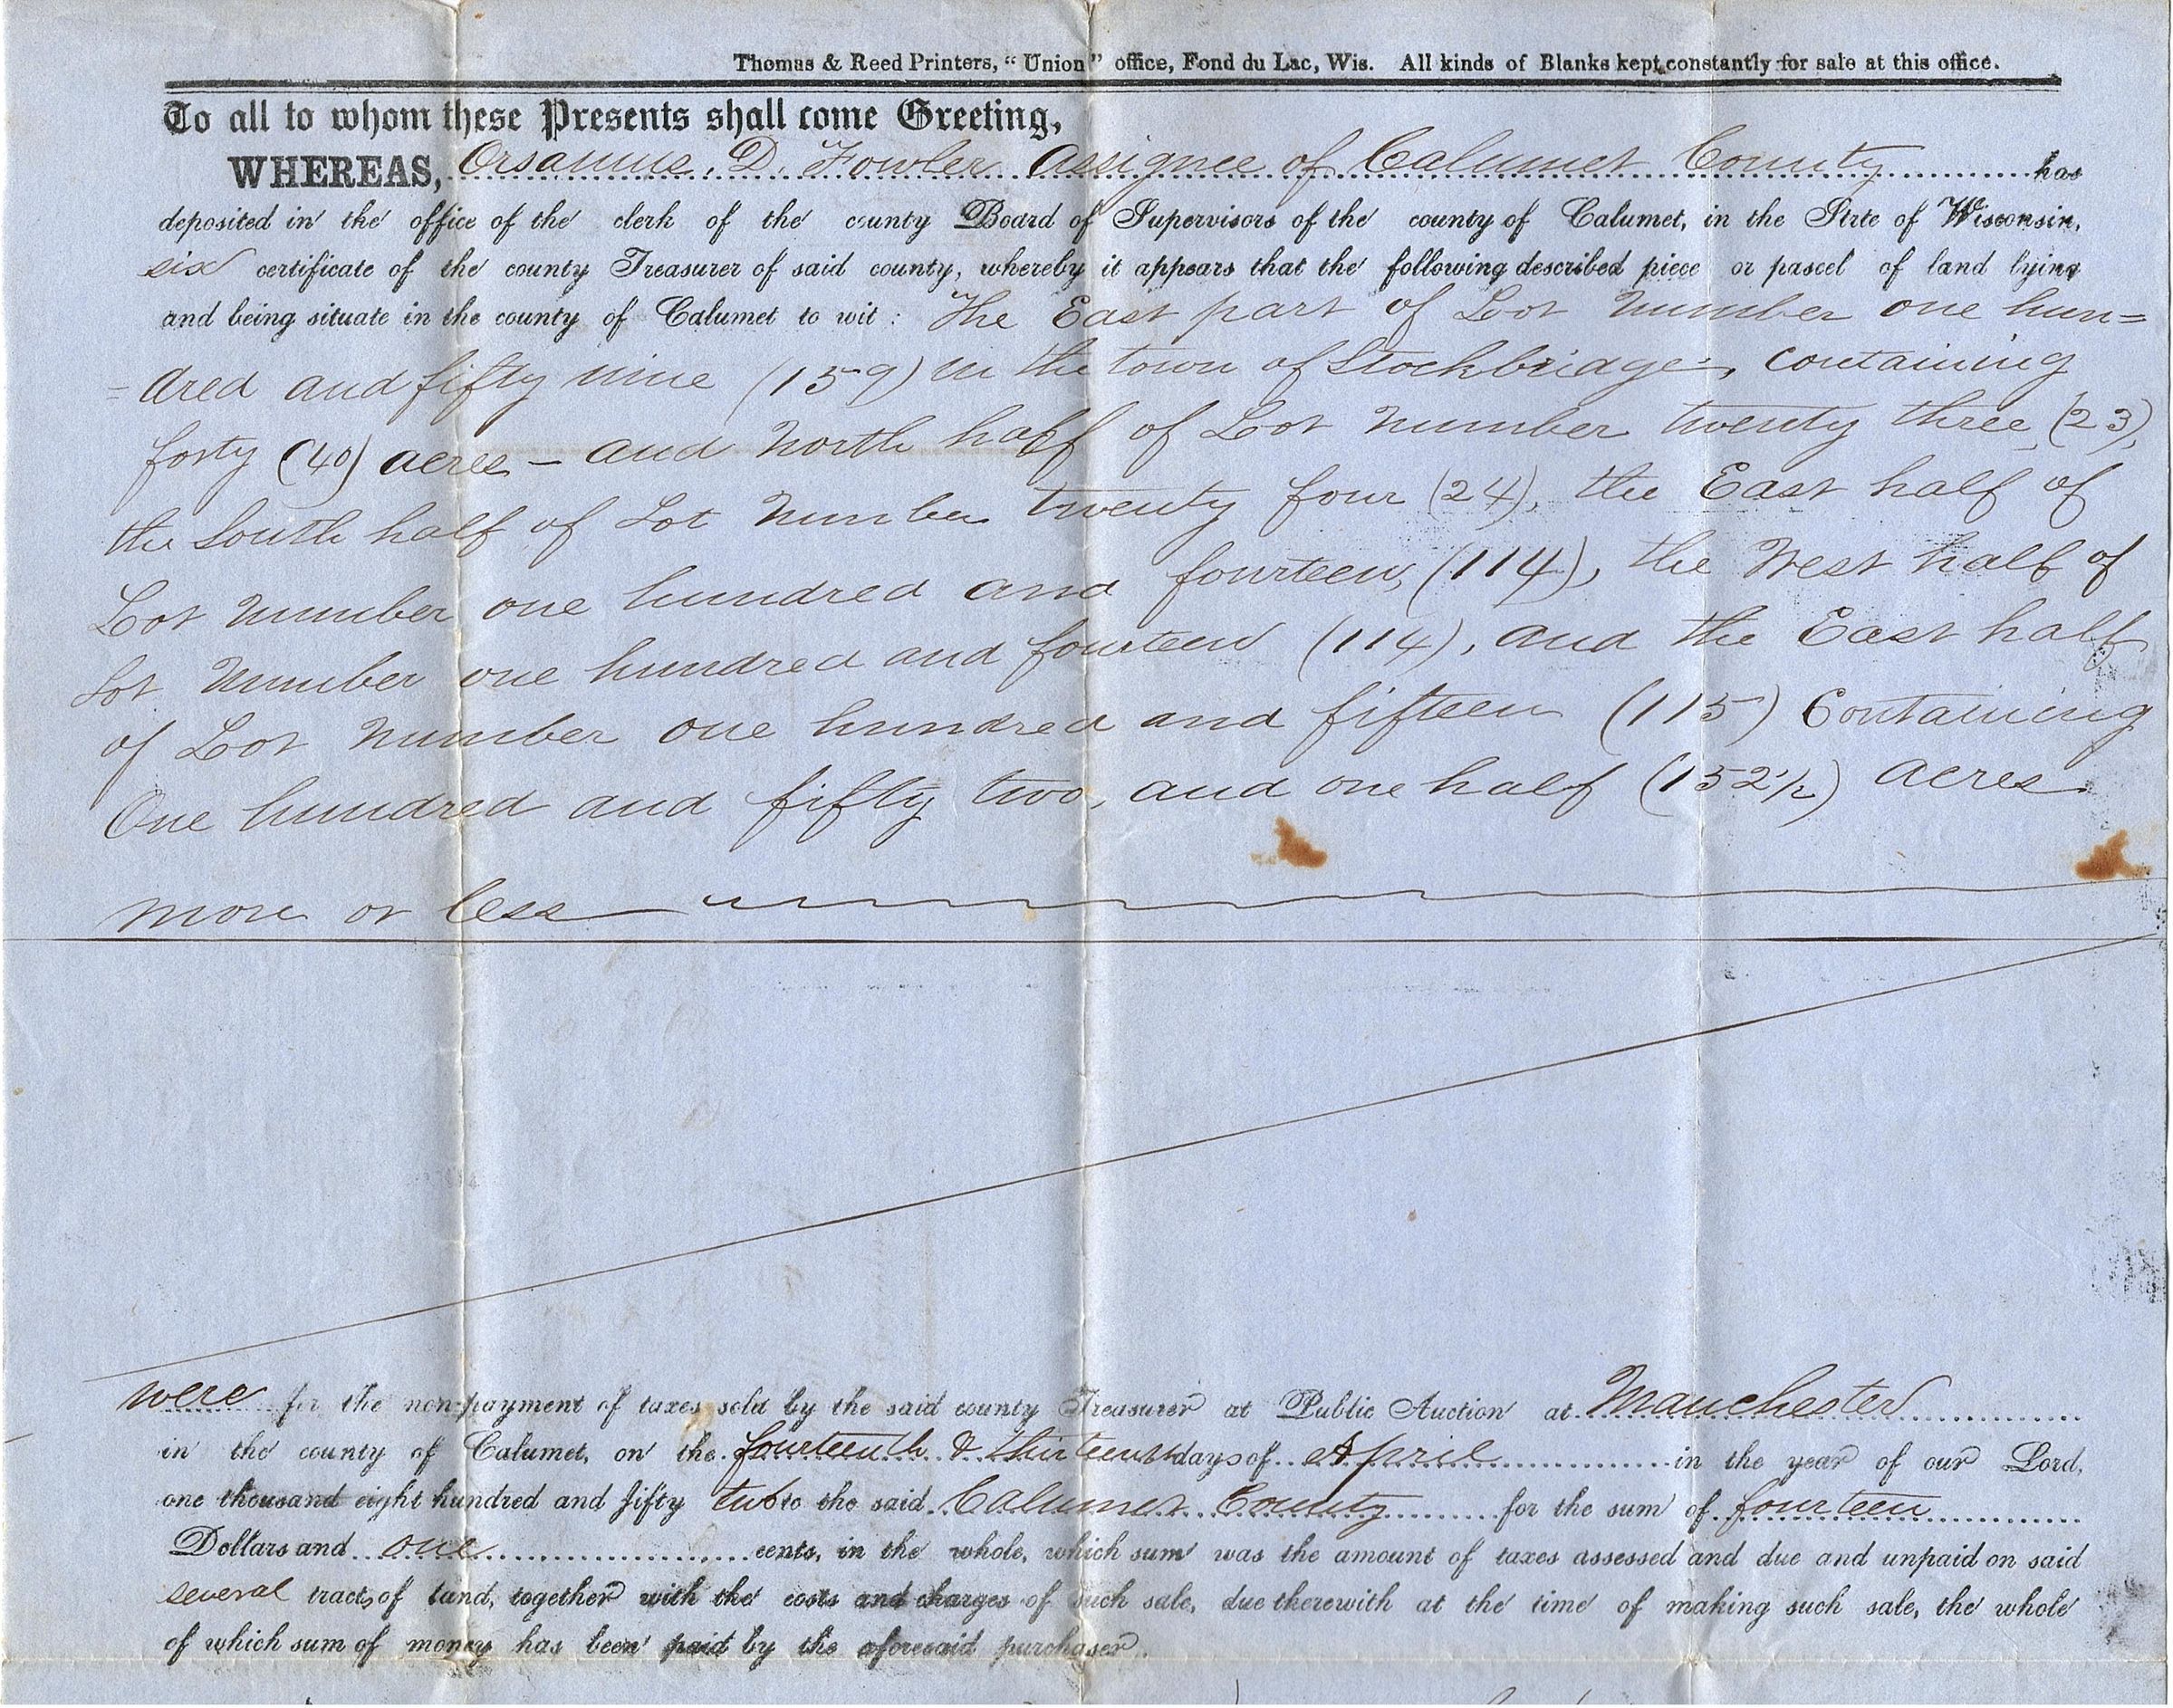 Thomas & Reed Printers, "Union" office, Fond du Lac, Wis. All kinds of Blanks kept constantly for sale at this office.
To all to whom these Presents shall come Greeting,
WHEREAS, Orsamus D. Fowler Assignee of Calumet County has
deposited in the office of the clerk of the county Board of Supervisors of the county of Calumet, in the Strte of Wisconsin,
six certificate of the county Treasurer of said county, whereby it appears that the following described piece or pascel of land lying
and being situate in the county of Calumet to wit: The East part of Lot Number one hun=
=dred and fifty nine (159) in the town of Stockbridge, containing
forty (40) acres - and North half of Lot Number twenty three (23),
the South half of Lot Number twenty four (24), the East half of
Lot Number one hundred and fourteen, (114), the West half of
Lot Number one hundred and fourteen (114), and the East half
of Lot Number one hundred and fifteen (115) Containing
One hundred and fifty two, and one half (152 1/2) acres.
more or less
were for the non-payment of taxes sold by the said county Treasurer at Public Auction at Manchester
in the county of Calumet, on the fourteenth & thirteenth days of April in the year of our Lord,
one thousand eight hundred and fifty two to the said Calumet County for the sum of fourteen
Dollars and one cents, in the whole, which sum was the amount of taxes assessed and due and unpaid on said
several tracts of land, together with the costs and charges of such sale, due therewith at the time of making such sale, the whole
of which sum of money has been paid by the aforesaid purchaser.